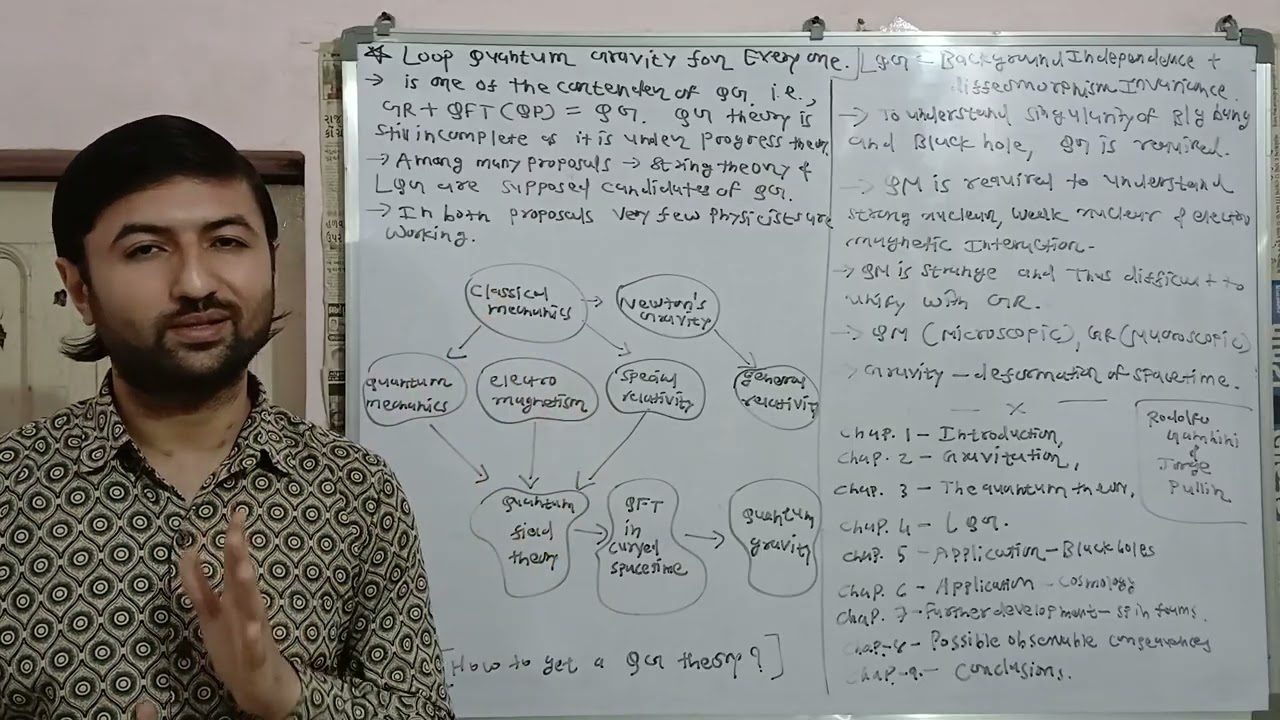 * Loop Quantum Gravity for Every one.
→ is one of the contender of QG. i.e.,
GR + QFT (QP) = QG. QG theory is
still incomplete as it is under progress theory.
→ Among many proposals → string theory &
LQG are supposed candidates of QG.
→ In both proposals very few physicists are
working.
Classical
mechanics
→
Newton's
Gravity
Quantum
mechanics
electro
magnetism
special
relativity
general
relativity
Quantum
field
theory
→
QFT
in
curved
spacetime
→
Quantum
gravity
[How to get a QG theory?]
LQG - Background Independence +
diffeomorphism Invariance.
→ To understand singularity of Big bang
and Black hole, QG is required.
→ QM is required to understand
strong nuclear, weak nuclear & electro
magnetic Interaction-
→ QM is strange and Thus difficult to
unify with GR.
→ QM (Microscopic), GR (Macroscopic)
→ Gravity - deformation of spacetime.
— x —
Chap. 1 - Introduction,
Chap. 2 - Gravitation,
Chap. 3 - The quantum theory,
Chap. 4 - LQG.
Chap. 5 - Application - Black holes
Chap. 6 - Application - Cosmology
Chap. 7 - Further development - spin foams.
Chap. 8 - Possible observable consequences
Chap. 9. - Conclusions.
Rodolfo
Gambini
&
Jorge
Pullin